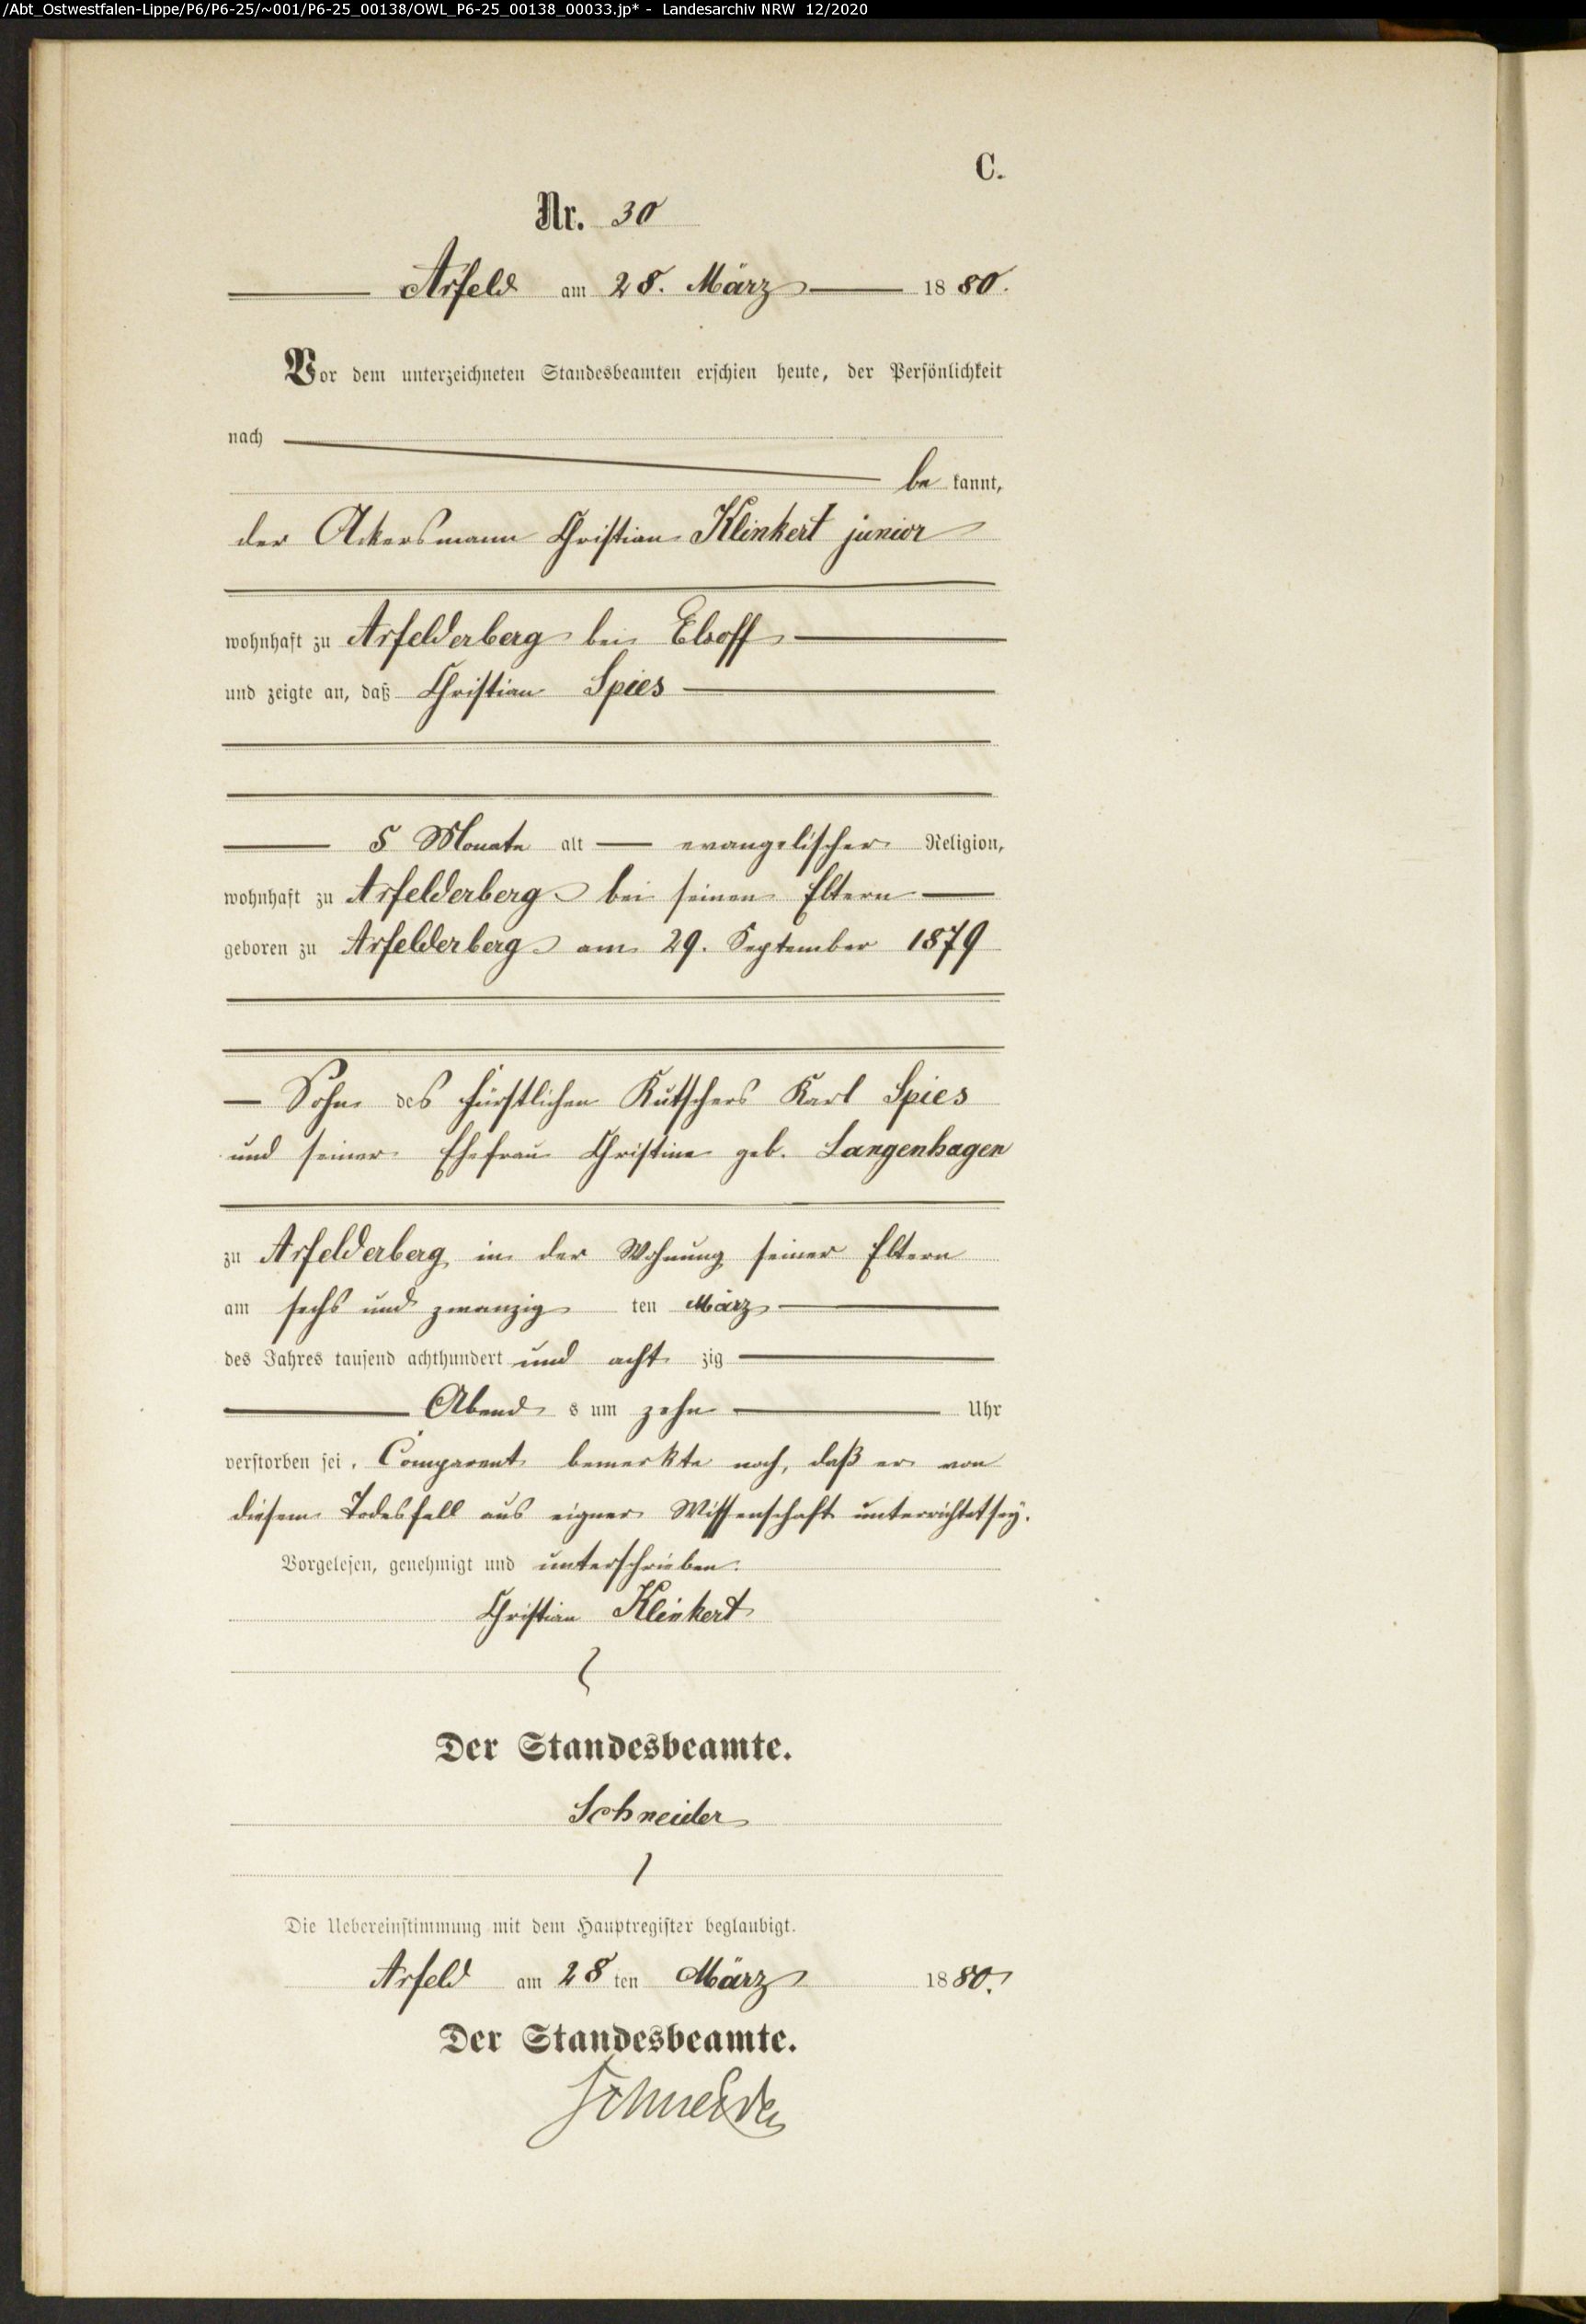 /Abt_Ostwestfalen-Lippe/P6/P6-25/~001/P6-25_00138/OWL_P6-25_00138_00033.jp* - Landesarchiv NRW 12/2020
C.
Nr. 30
Arfeld am 28. März 1880.
Vor dem unterzeichneten Standesbeamten erschien heute, der Persönlichkeit
nach
bekannt,
der Ackersmann Christian Klinkert junior
wohnhaft zu Arfelderberg bei Elsoff
und zeigte an, daß Christian Spies
5 Monate alt evangelischer Religion,
wohnhaft zu Arfelderberg bei seinen Eltern
geboren zu Arfelderberg am 29. September 1879
Sohn des fürstlichen Kutschers Karl Spies
und seiner Ehefrau Christine geb. Langenhagen
zu Arfelderberg in der Wohnung seiner Eltern
am sechs und zwanzig ten März
des Jahres tausend achthundert und acht zig
Abend s um zehn Uhr
verstorben sei. Comparent bemerkte noch, daß er von
diesem Todesfall aus eigner Wissenschaft unterrichtet sey.
Vorgelesen, genehmigt und unterschrieben.
Christian Klinkert
Der Standesbeamte.
Schneider
Die Uebereinstimmung mit dem Hauptregister beglaubigt.
Arfeld am 28 ten März 1880.
Der Standesbeamte.
Schneider